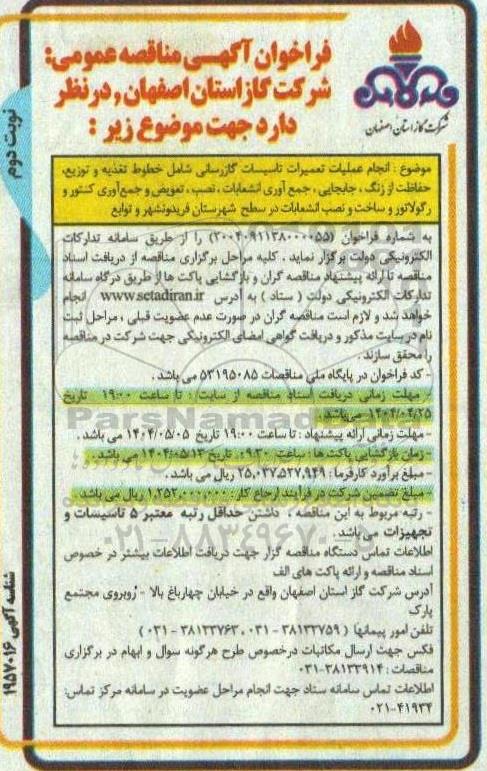 فراخوان آگهی مناقصه عمومی:
شرکت گاز استان اصفهان ,در نظر
دارد جهت موضوع زیر :
شرکت گاز استان اصفهان
نوبت دوم
موضوع : انجام عملیات تعمیرات تاسیسات گازرسانی شامل خطوط تغذیه و توزیع،
حفاظت از زنگ ، جابجایی ، جمع آوری انشعابات ، نصب ، تعویض و جمع‌آوری کنتور و
رگولاتور و ساخت و نصب انشعابات در سطح شهرستان فریدونشهر و توابع
به شماره فراخوان (۲۰۰۴۰۹۱۱۳۸۰۰۰۰۵۵) را از طریق سامانه تدارکات
الکترونیکی دولت برگزار نماید . کلیه مراحل برگزاری مناقصه از دریافت اسناد
مناقصه تا ارائه پیشنهاد مناقصه گران و بازگشایی پاکت ها از طریق درگاه سامانه
تدارکات الکترونیکی دولت ( ستاد ) به آدرس www.setadiran.ir انجام
خواهد شد و لازم است مناقصه گران در صورت عدم عضویت قبلی ، مراحل ثبت
نام در سایت مذکور و دریافت گواهی امضای الکترونیکی جهت شرکت در مناقصه
را محقق سازند .
- کد فراخوان در پایگاه ملی مناقصات ۵۳۱۹۵۰۸۵ می باشد .
- مهلت زمانی دریافت اسناد مناقصه از سایت : تا ساعت ۱۹:۰۰ تاریخ
۱۴۰۴/۰۴/۲۵ می‌باشد .
- مهلت زمانی ارائه پیشنهاد : تا ساعت ۱۹:۰۰ تاریخ ۱۴۰۴/۰۵/۰۵ می باشد .
- زمان بازگشایی پاکت ها : ساعت ۰۹:۳۰ تاریخ ۱۴۰۴/۰۵/۱۳ می باشد .
- مبلغ برآورد کارفرما: ۲۵,۰۳۷,۵۲۷,۹۴۹ ریال می باشد .
- مبلغ تضمین شرکت در فرآیند ارجاع کار : ۱,۲۵۲,۰۰۰,۰۰۰ ریال می باشد .
- رتبه مربوط به این مناقصه ، داشتن حداقل رتبه معتبر ۵ تاسیسات و
تجهیزات می باشد .
اطلاعات تماس دستگاه مناقصه گزار جهت دریافت اطلاعات بیشتر در خصوص
اسناد مناقصه و ارائه پاکت های الف
آدرس شرکت گاز استان اصفهان واقع در خیابان چهارباغ بالا - روبروی مجتمع
پارک
تلفن امور پیمانها ( ۳۸۱۳۳۷۵۹ - ۰۳۱ ، ۳۸۱۳۳۷۶۳ - ۰۳۱ )
فکس جهت ارسال مکاتبات درخصوص طرح هرگونه سوال و ابهام در برگزاری
مناقصات : ۳۸۱۳۳۹۱۴-۰۳۱
اطلاعات تماس سامانه ستاد جهت انجام مراحل عضویت در سامانه مرکز تماس:
۴۱۹۳۴-۰۲۱
شناسه آگهی ۱۹۵۷۰۱۶
ParsNamadData
۰۲۱-۸۸۳۴۹۶۷۰